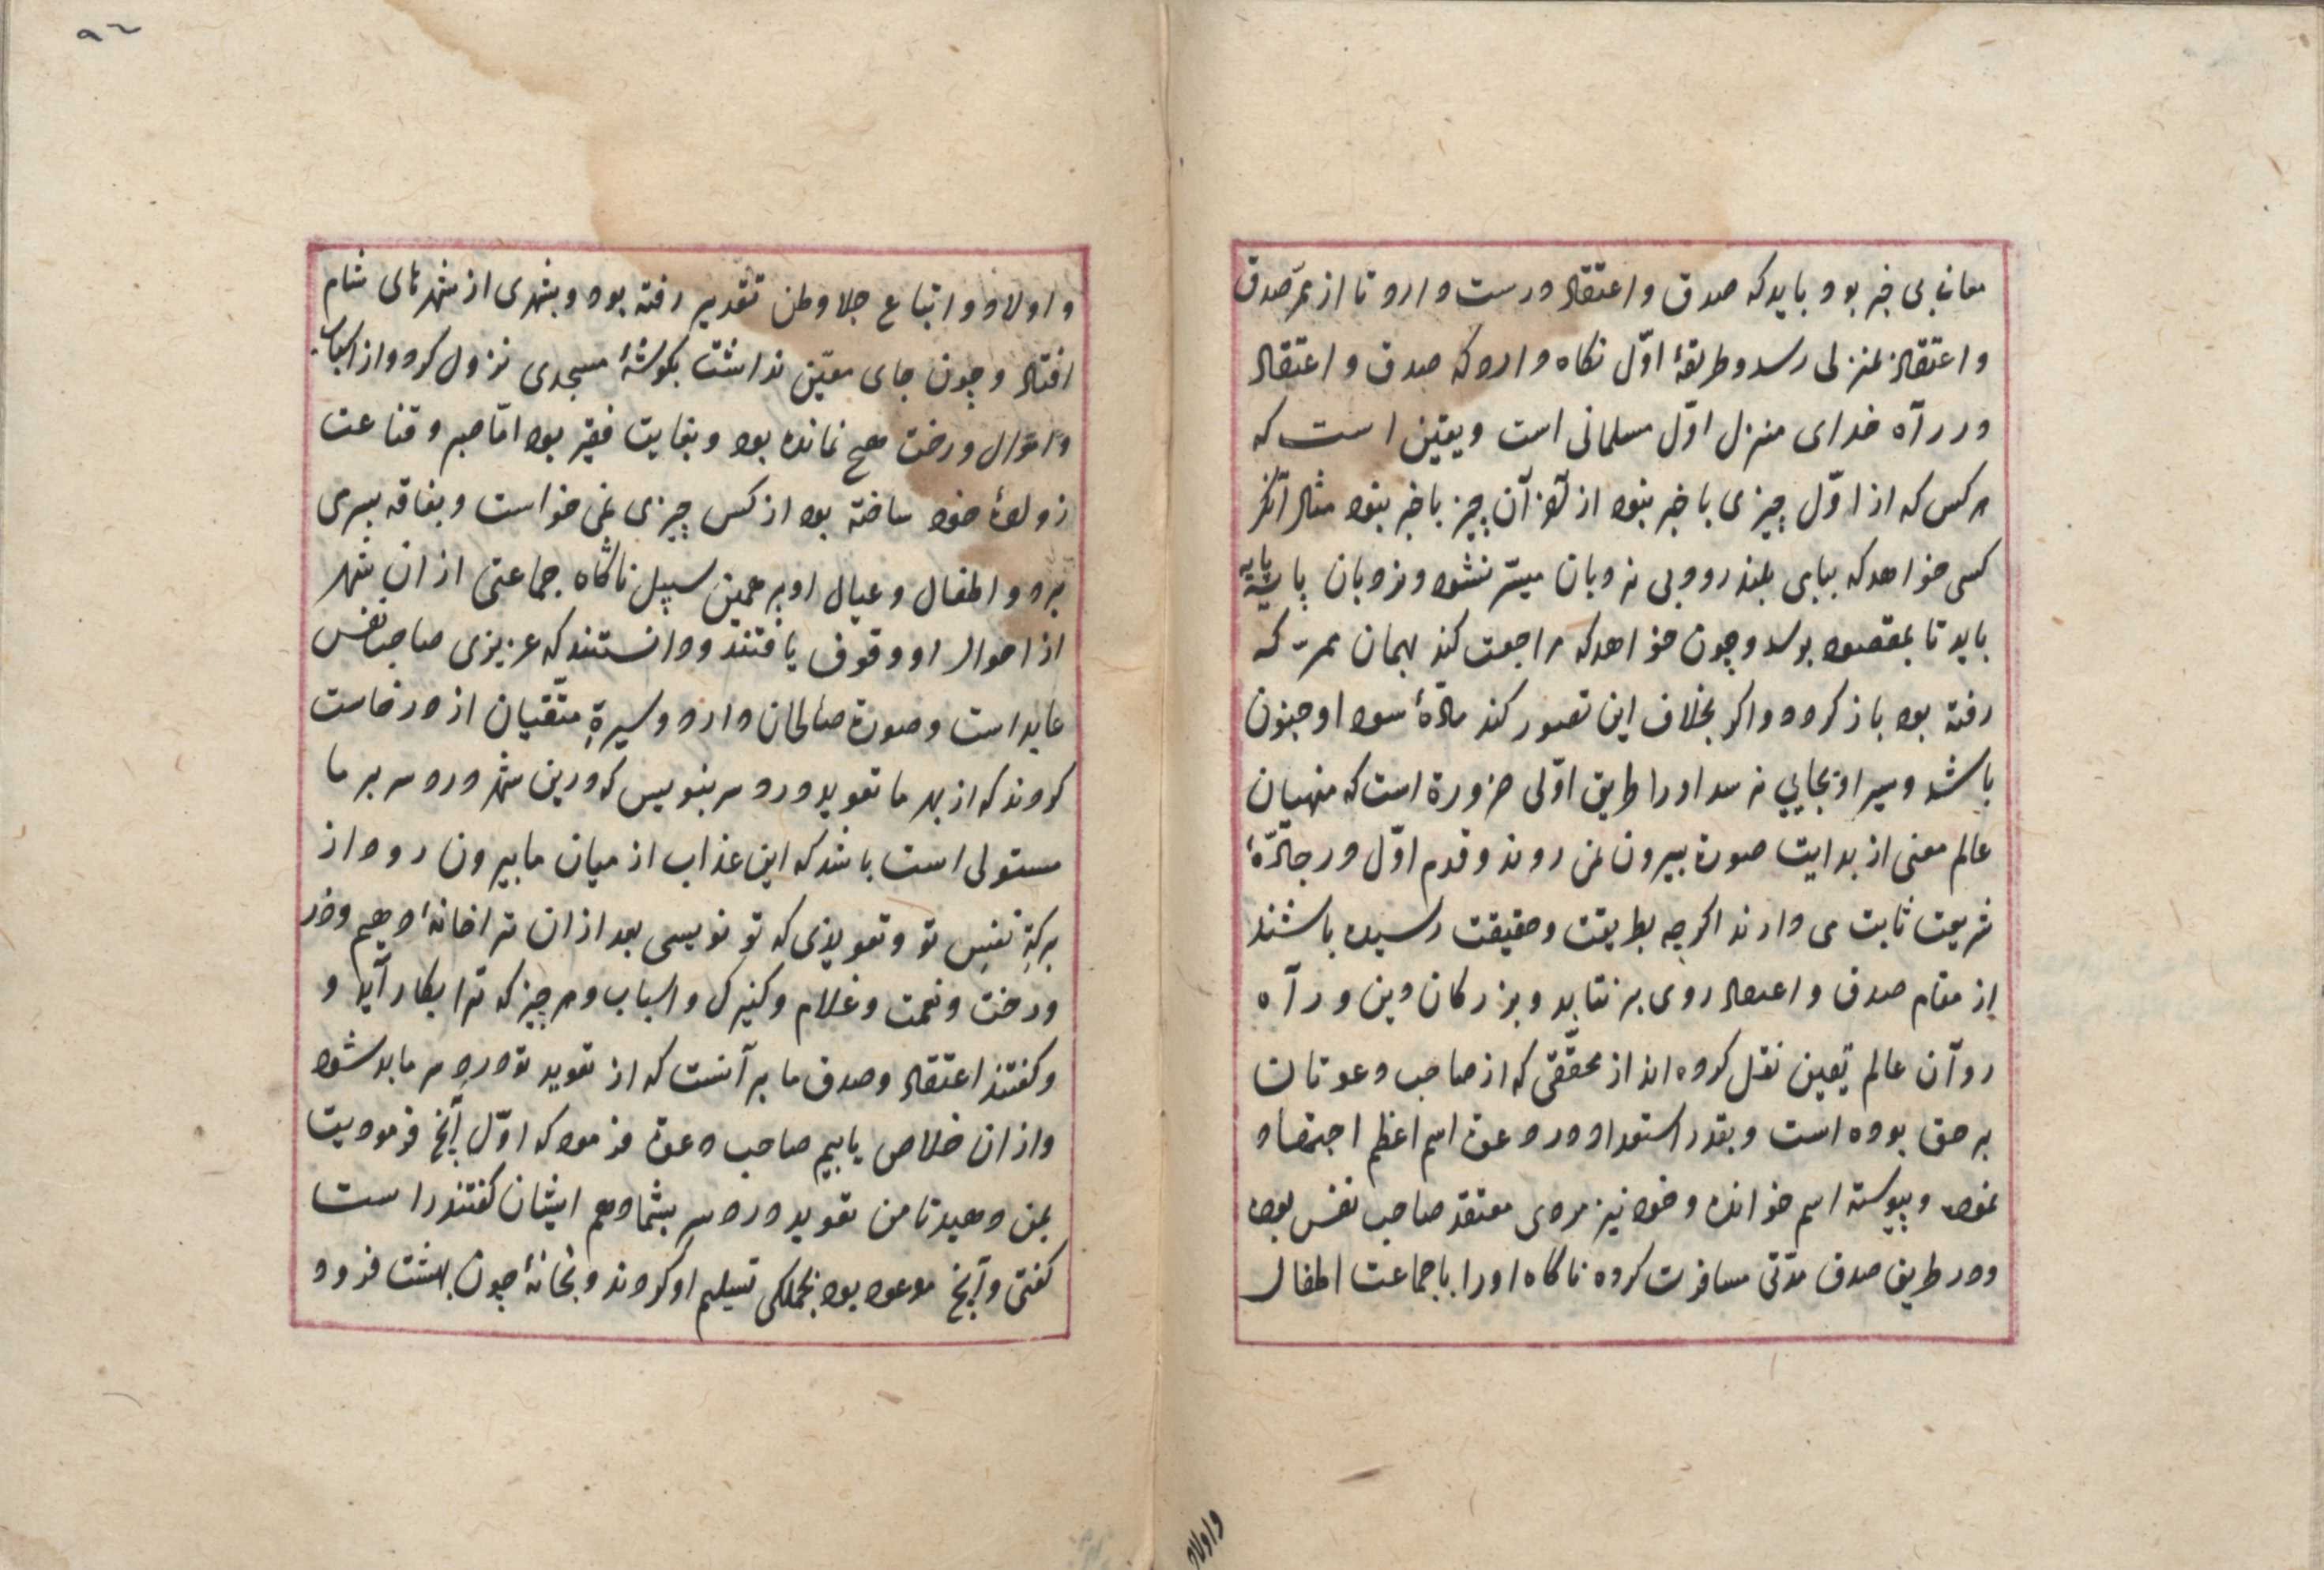 معانی بی خبر بود باید که صدق و اعتقاد درست دارد تا از ممرّ صدق
و اعتقاد بمنزلی رسد و طریقهٔ اوّل نکاه دارد که صدق و اعتقاد
در راه خدای منزل اوّل مسلمانی است و یقین است که
هر کس که از اوّل چیزی با خبر نبود از آخر آن چیز با خبر نبود مثلا اگر
کسی خواهد که ببامی بلند رود بی نردبان میسّر نشود و نردبان پایه پایه
باید تا بمقصود برسد و چون خواهد که مراجعت کند بهمان ممر که
رفته بود باز کردد و اکر بخلاف این تصور کند مادّهٔ سودا و جنون
باشد و سیر او بجایی نرسد او را طریق اوّلی ضرورة است که منهیان
عالم معنی از بدایت صورة بیرون نمی روند و قدم اوّل در جادّهٔ
شریعت ثابت می دارند اکرچه بطریقت و حقیقت رسیده باشند
از مقام صدق و اعتقاد روی بر نتابد و بزرکان دین و راه
روان عالم یقین نقل کرده اند از محقّقی که از صاحب دعوتان
بر حق بوده است و بقدر استعداد در دعوة اسم اعظم اجتهاد
نموده و پیوسته اسم خوانده و خود نیز مردی معتقد صاحب نفس بوده
و در طریق صدق مدّتی مسافرت کرده ناکاه او را با جماعت اطفال
واولاد
٩٦
و اولاد و اتباع جلا وطن تقدیر رفته بود و بشهری از شهرهای شام
افتاد و چون جای معیّن نداشت بکوشهٔ مسجدی نزول کرد و از اسباب
و اموال و رخت هیچ نمانده بود و بغایت فقیر بود امّا صبر و قناعت
زوادهٔ خود ساخته بود از کس چیزی نمی خواست و بفاقه بسرمی
برد و اطفال و عیال او بر همین سبیل ناکاه جماعتی از ان شهر
از احوال او وقوف یافتند و دانستند که عزیزی صاحب نفس
عابد است و صورة صالحان دارد و سیرة متّقیان از و درخاست
کردند که از بهر ما تعوید درد سر بنویس که درین شهر درد سر بر ما
مستولی است باشد که این عذاب از میان ما بیرون رود از
برکة نفس تو و تعویذی که تو نویسی بعد از ان ترا خانهٔ دهیم و خر
و رخت و نعمت و غلام و کنیزک و اسباب و هر چیز که ترا بکار آید و
و کفتند اعتقاد و صدق ما بر آنست که از تعوید تو درد سر ما بد شود
و از ان خلاص یابیم صاحب دعوة فرمود که اوّل آنچ فرمودیت
بمن دهید تا من تعوید درد سر بشما دهم ایشان کفتند راست
کفتی و آنچ موعود بود بجملکی تسلیم او کردند و بخانهٔ چون بهشت فرود